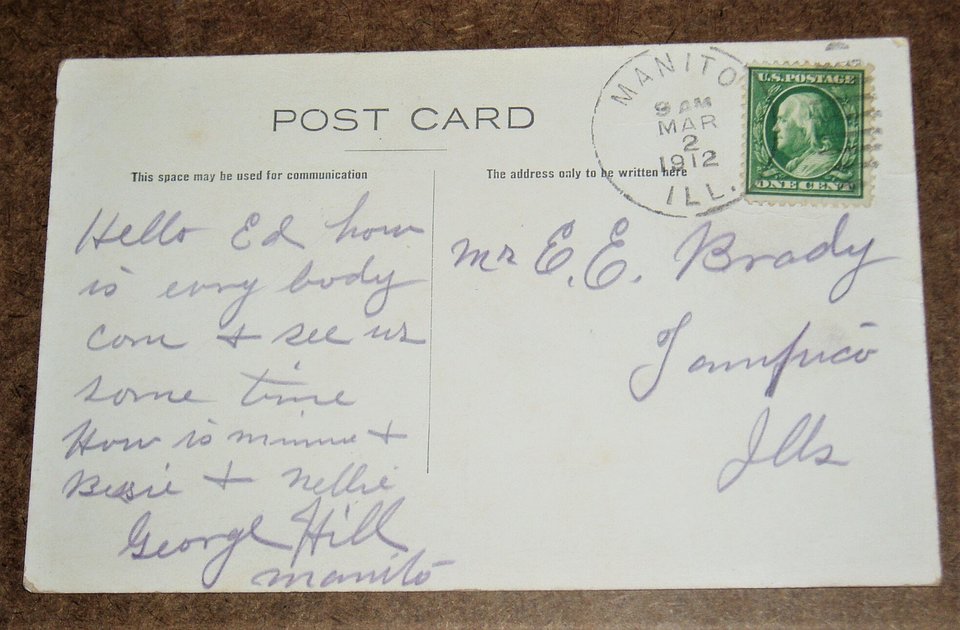 POST CARD
This space may be used for communication
Hello Ed how
is evry body
com & see us
some time
How is minnie &
Bessie & Nellie
George Hill
manito
The address only to be written here
MANITO
9 AM
MAR
2
1912
ILL.
U.S. POSTAGE
ONE CENT
Mr E. E. Brady
Tampico
Ills